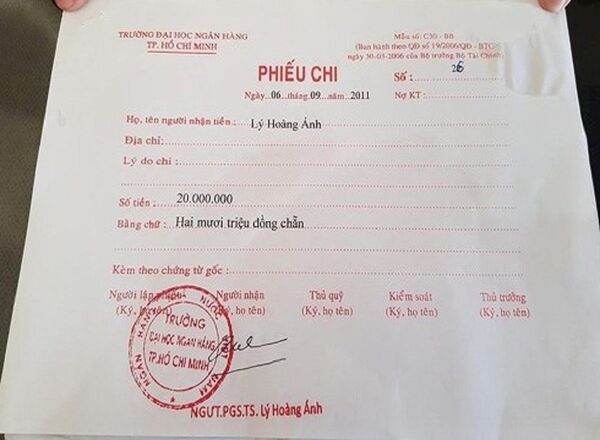 TRƯỜNG ĐẠI HỌC NGÂN HÀNG
TP. HỒ CHÍ MINH
Mẫu số: C30 - BB
(Ban hành theo QĐ số 19/2006/QĐ - BTC
ngày 30-03-2006 của Bộ trưởng Bộ Tài Chính)
PHIẾU CHI
Số : 26
Ngày 06 tháng 09 năm 2011
Nợ KT :
Họ, tên người nhận tiền : Lý Hoàng Ánh
Địa chỉ:
Lý do chi :
Số tiền : 20.000.000
Bằng chữ : Hai mươi triệu đồng chẵn
Kèm theo chứng từ gốc :
Người lập phiếu Người nhận Thủ quỹ Kiểm soát Thủ trưởng
(Ký, họ tên) (Ký, họ tên) (Ký, họ tên) (Ký, họ tên) (Ký, họ tên)
NGÂN HÀNG NHÀ NƯỚC VIỆT NAM
TRƯỜNG
ĐẠI HỌC NGÂN HÀNG
TP.HỒ CHÍ MINH
NGƯT.PGS.TS. Lý Hoàng Ánh